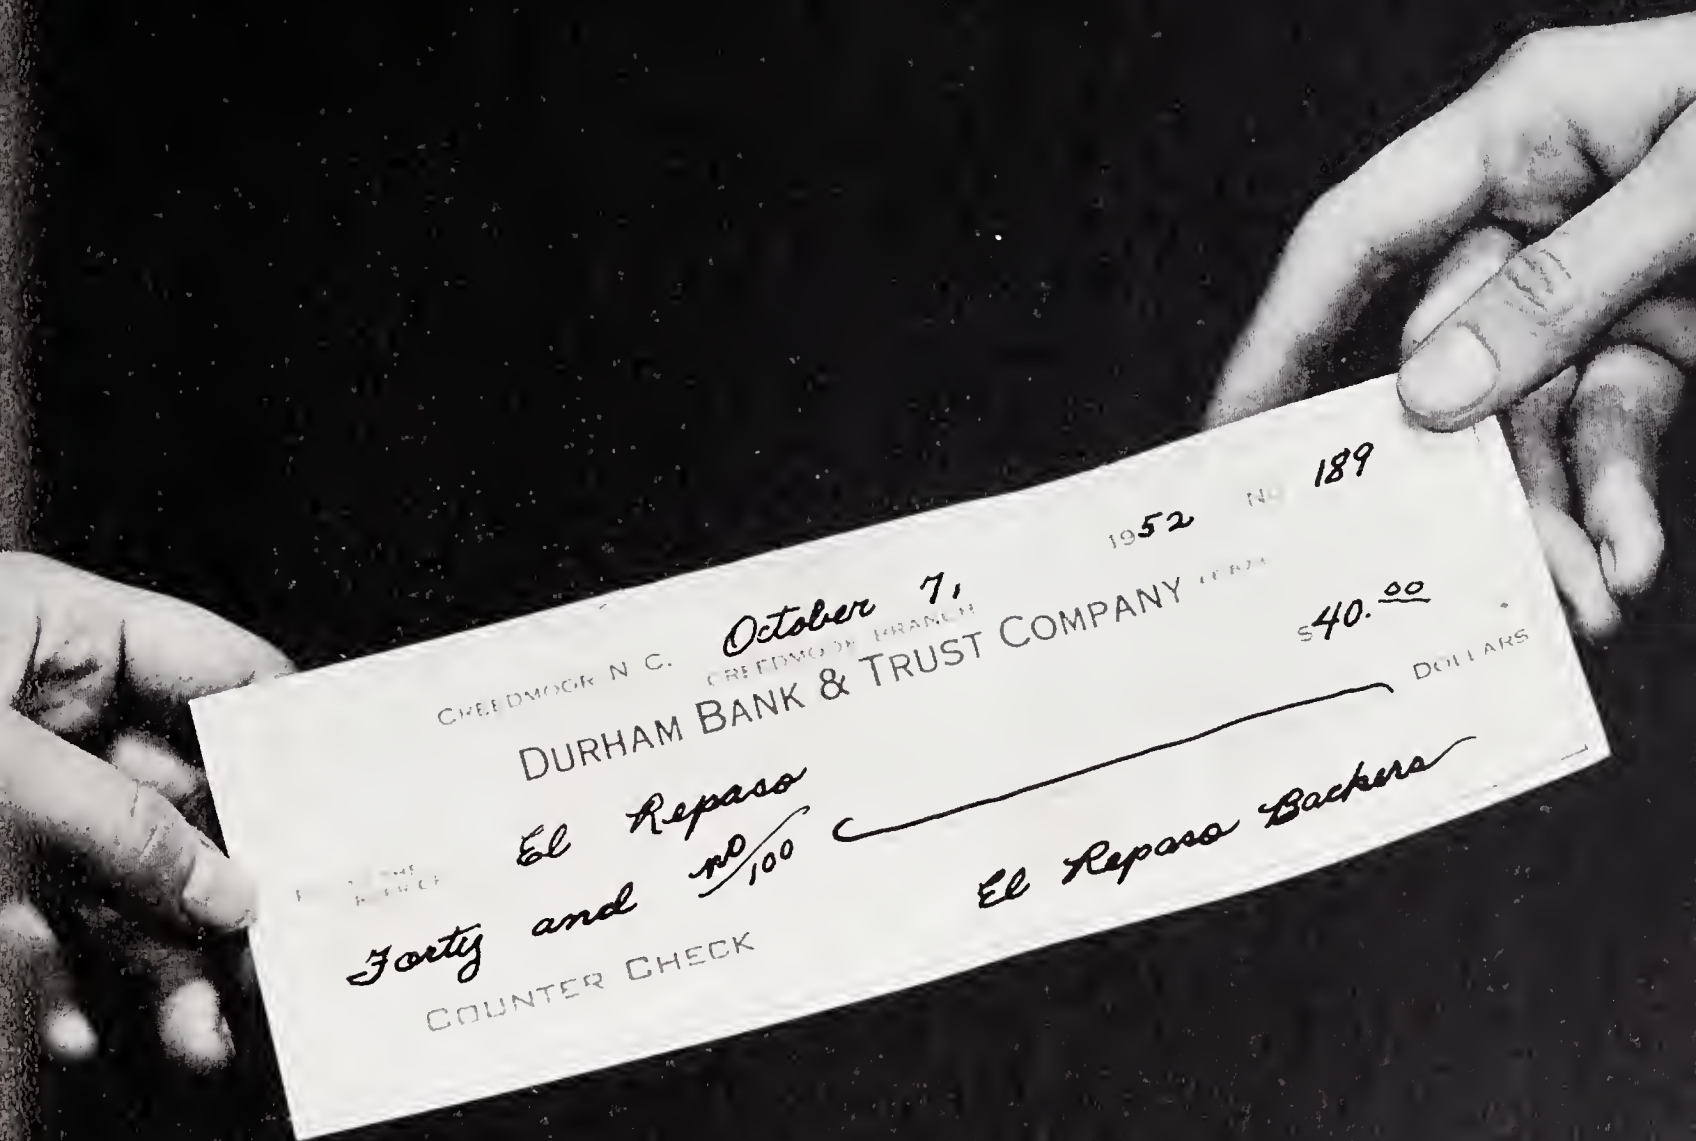 CREEDMOOR N. C. October 7, 1952 No 189
CREEDMOOR BRANCH
DURHAM BANK & TRUST COMPANY
El Repaso $40.00
Forty and no/100 DOLLARS
COUNTER CHECK El Repaso Backers